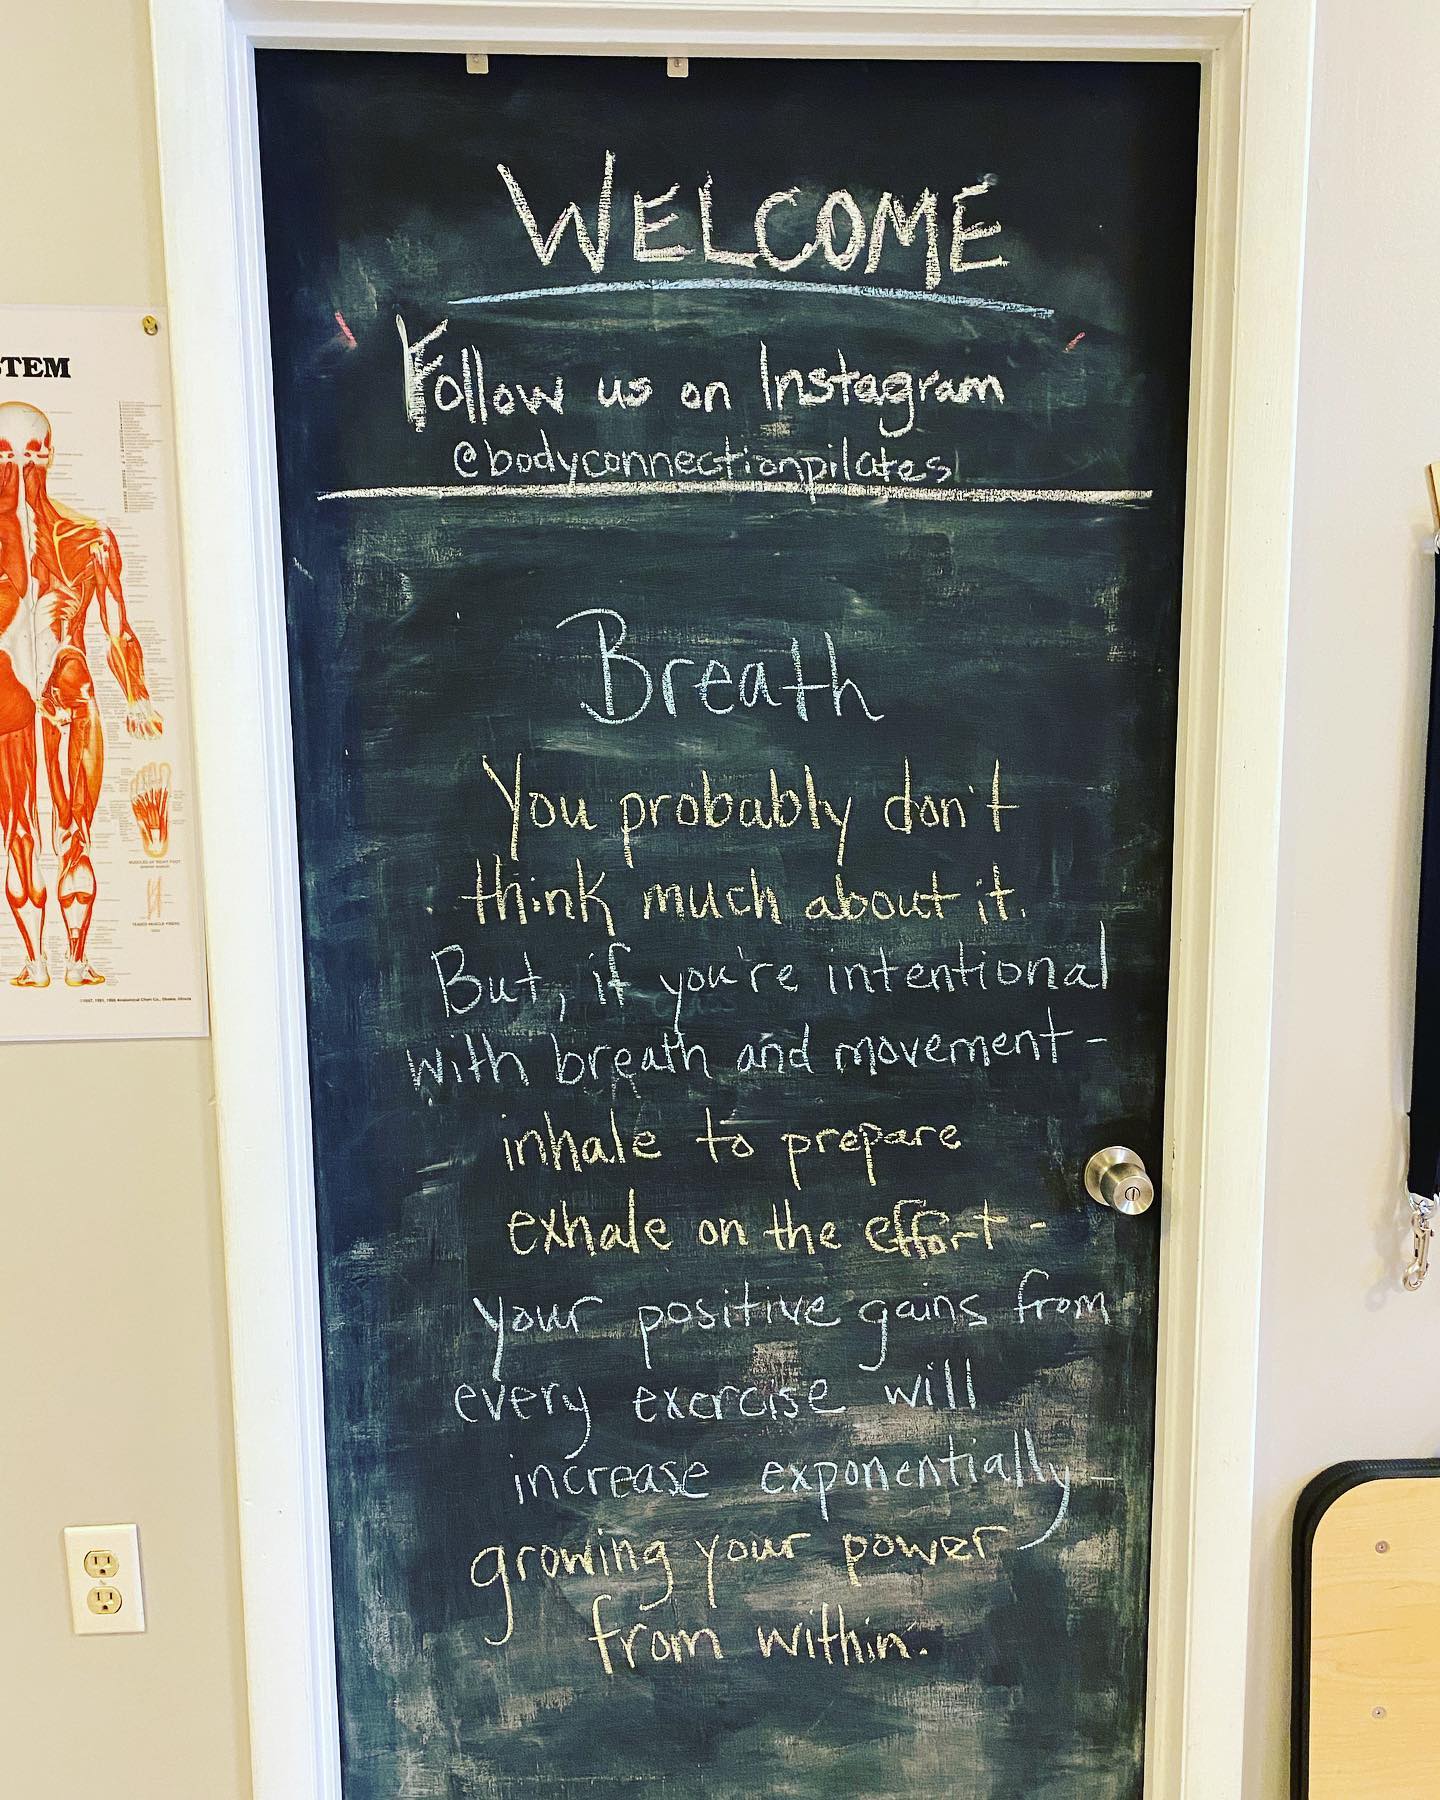 WELCOME
Follow us on Instagram
@bodyconnectionpilates
Breath
You probably don't
think much about it.
But, if you're intentional
with breath and movement-
inhale to prepare
exhale on the effort-
your positive gains from
every exercise will
increase exponentially-
growing your power
from within.
STEM
MUSCLES OF RIGHT FOOT